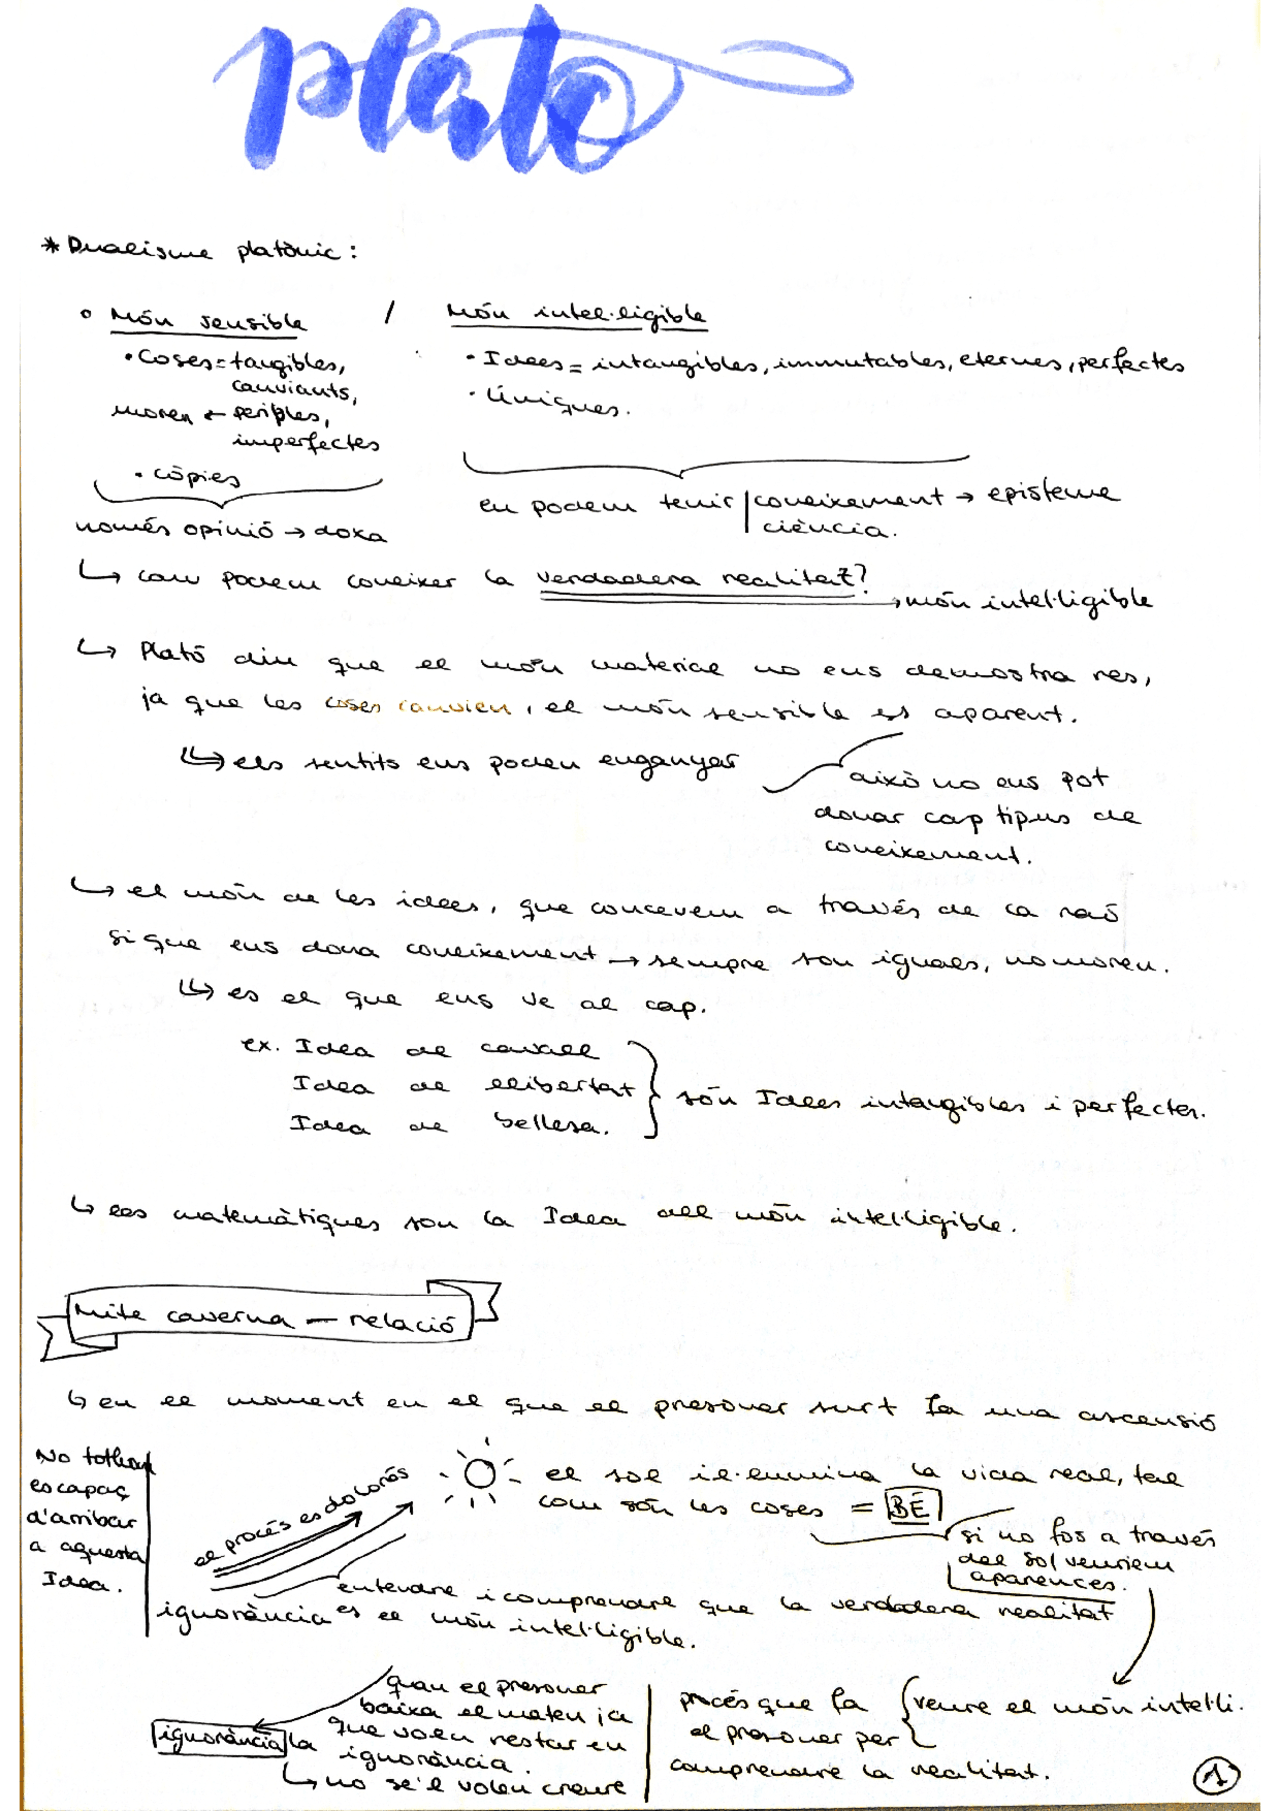 plato
* Dualisme platònic:
° Món sensible / Món intel·ligible
• Coses = tangibles,
canviants,
moren ← peribles,
imperfectes
• còpies
només opinió → doxa
• Idees = intangibles, immutables, eternes, perfectes
• Úniques.
en podem tenir | coneixement → episteme
ciència.
↳ com podem coneixer la verdadera realitat?
→ món intel·ligible
↳ Plató diu que el món material no ens demostra res,
ja que les coses canvien, el món sensible es aparent.
↳ els sentits ens poden enganyar
això no ens pot
donar cap tipus de
coneixement.
↳ el món de les idees, que concevem a través de la raó
si que ens dona coneixement → sempre son iguals, no moren.
↳ es el que ens ve al cap.
ex. Idea de cavall
Idea de llibertat
Idea de bellesa.
són Idees intangibles i perfectes.
↳ les matemàtiques son la Idea del món intel·ligible.
Mite caverna — relació
↳ en el moment en el que el presoner surt fa una ascensió
No tothom
es capaç
d'arribar
a aquesta
Idea.
el procés es dolorós
el sol il·lumina la vida real, tal
com són les coses = BÉ
si no fos a través
del sol veuriem
aparences.
entendre i comprendre que la verdadera realitat
ignorància es el món intel·ligible.
quan el presoner
baixa el maten ja
que volen restar en
ignorància la ignorància.
↳ no se'l volen creure
procés que fa
el presoner per
veure el món intel·li.
comprendre la realitat.
1